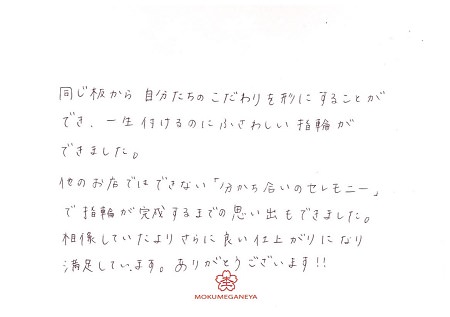 同じ板から自分たちのこだわりを形にすることが
でき、一生付けるのにふさわしい指輪が
できました。
他のお店ではできない「分かち合いのセレモニー」
で指輪が完成するまでの思い出もできました。
相像していたよりさらに良い仕上がりになり
満足しています。ありがとうございます!!
MOKUMEGANEYA